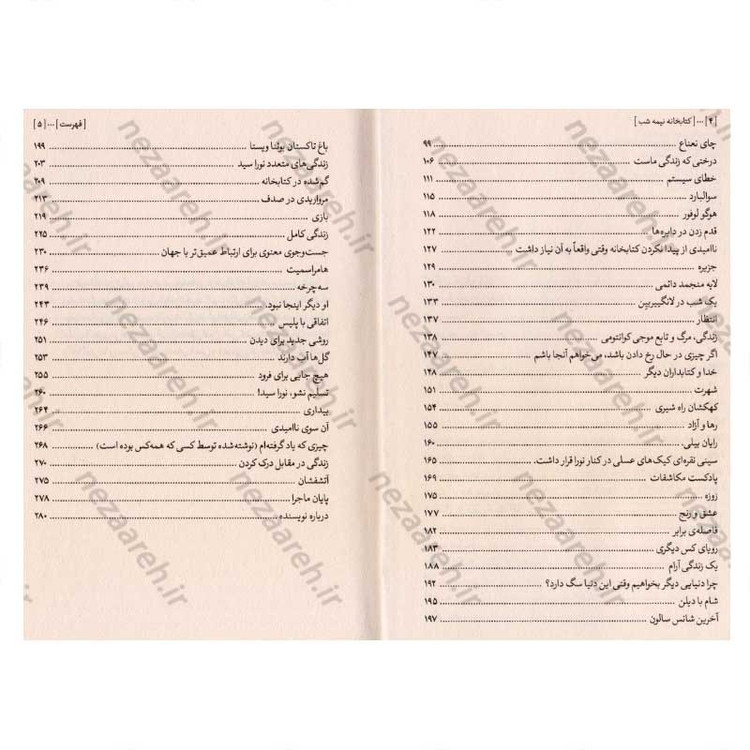 [ ۴ ] ... [ کتابخانه نیمه شب ]
چای نعناع ۹۹
درختی که زندگی ماست ۱۰۶
خطای سیستم ۱۱۱
سوالبارد ۱۱۵
هوگو لوفور ۱۱۸
قدم زدن در دایره‌ها ۱۲۲
ناامیدی از پیدا نکردن کتابخانه وقتی واقعاً به آن نیاز داشت ۱۲۷
جزیره ۱۲۹
لایه منجمد دائمی ۱۳۰
یک شب در لانگییربین ۱۳۳
انتظار ۱۳۷
زندگی، مرگ و تابع موجی کوانتومی ۱۳۸
اگر چیزی در حال رخ دادن باشد، می‌خواهم آنجا باشم ۱۴۷
خدا و کتابداران دیگر ۱۴۸
شهرت ۱۵۱
کهکشان راه شیری ۱۵۴
رها و آزاد ۱۵۵
رایان بیلی. ۱۶۰
سینی نقره‌ای کیک‌های عسلی در کنار نورا قرار داشت. ۱۶۵
پادکست مکاشفات ۱۶۹
زوزه ۱۷۵
عشق و رنج ۱۷۷
فاصله‌ی برابر ۱۸۲
رویای کس دیگری ۱۸۳
یک زندگی آرام ۱۸۸
چرا دنیایی دیگر بخواهیم وقتی این دنیا سگ دارد؟ ۱۹۲
شام با دیلن ۱۹۵
آخرین شانس سالون ۱۹۷
[ فهرست ] ... [ ۵ ]
باغ تاکستان بوئنا ویستا ۱۹۹
زندگی‌های متعدد نورا سید ۲۰۳
گم‌شده در کتابخانه ۲۰۹
مرواریدی در صدف ۲۱۳
بازی ۲۱۹
زندگی کامل ۲۲۵
جست‌وجوی معنوی برای ارتباط عمیق‌تر با جهان ۲۳۰
هامراسمیت ۲۳۶
سه‌چرخه ۲۳۹
او دیگر اینجا نبود. ۲۴۳
اتفاقی با پلیس ۲۴۶
روشی جدید برای دیدن ۲۵۱
گل‌ها آب دارند ۲۵۳
هیچ جایی برای فرود ۲۵۵
تسلیم نشو، نورا سید! ۲۶۰
بیداری ۲۶۴
آن سوی ناامیدی ۲۶۶
چیزی که یاد گرفته‌ام (نوشته‌شده توسط کسی که همه‌کس بوده است) ۲۶۸
زندگی در مقابل درک کردن ۲۷۰
آتشفشان ۲۷۵
پایان ماجرا ۲۷۸
درباره نویسنده ۲۸۰
nezaareh.ir
nezaareh.ir
nezaareh.ir
nezaareh.ir
nezaareh.ir
nezaareh.ir